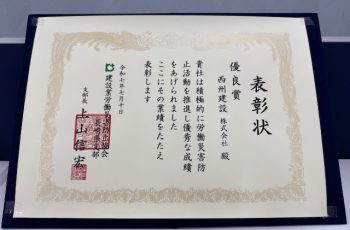 表彰状
優良賞
西州建設 株式会社 殿
貴社は積極的に労働災害防
止活動を推進し優秀な成績
をあげられました
ここにその業績をたたえ
表彰します
令和七年七月十日
建設業労働災害防止協会
支部長 上山信宏